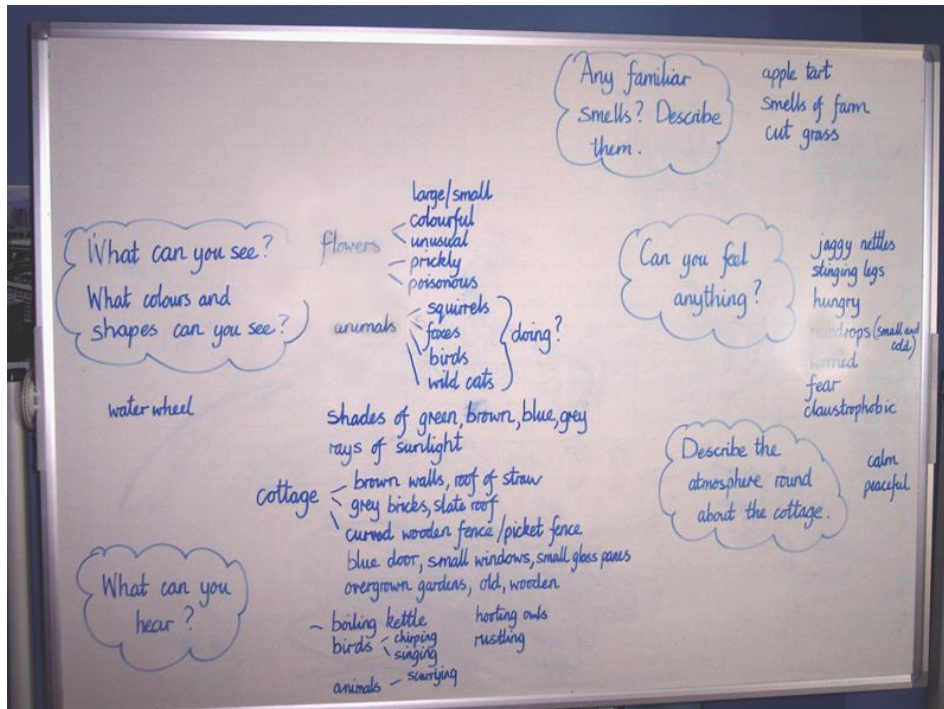 Any familiar
smells? Describe
them.
apple tart
smells of farm
cut grass
What can you see?
What colours and
shapes can you see?
flowers
large/small
colourful
unusual
prickly
poisonous
animals
squirrels
foxes
birds
wild cats
doing?
water wheel
shades of green, brown, blue, grey
rays of sunlight
cottage
brown walls, roof of straw
grey bricks, slate roof
curved wooden fence/picket fence
blue door, small windows, small glass panes
overgrown gardens, old, wooden
Can you feel
anything?
jaggy nettles
stinging legs
hungry
raindrops (small and
cold)
worried
fear
claustrophobic
Describe the
atmosphere round
about the cottage.
calm
peaceful
What can you
hear?
boiling kettle
birds
chirping
singing
animals - scurrying
hooting owls
rustling